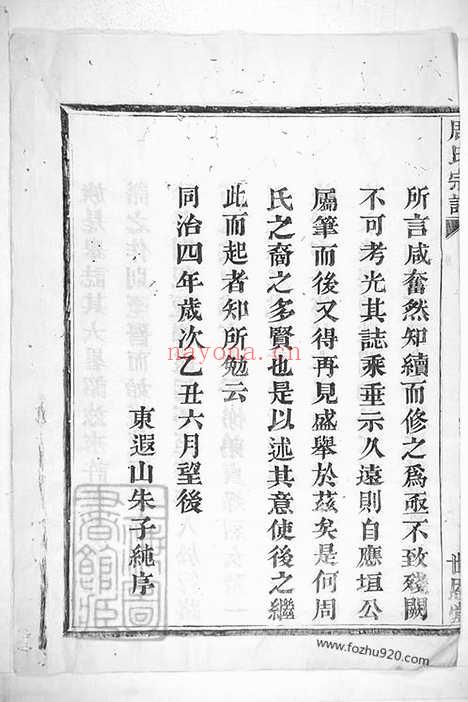 周氏宗譜
所言咸奮然知續而修之爲亟不致殘闕
不可考光其誌乘垂示久遠則自應垣公
屬筆而後又得再見盛舉於茲矣是何周
氏之裔之多賢也是以述其意使後之繼
此而起者知所勉云
同治四年歲次乙丑六月望後
東遐山朱子純序
nayona.cn
www.fozhu920.com